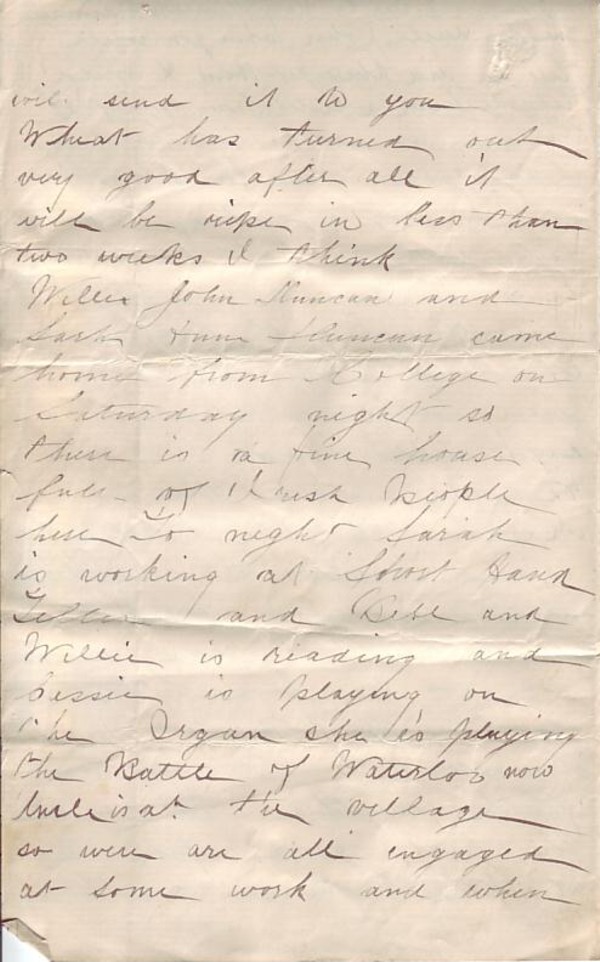 will send it to you
Wheat has turned out
very good after all it
will be ripe in less than
two weeks I think
Willie John Duncan and
Sarh Ann Duncan came
home from College on
Saturday night so
there is a fine house
full of Irish People
here To night Sarah
is working at Short Hand
and Bell and
Willie is reading and
Cassie is playing on
the Organ she is playing
the Battle of Waterloo now
Uncle is at the village
so were are all engaged
at some work and when